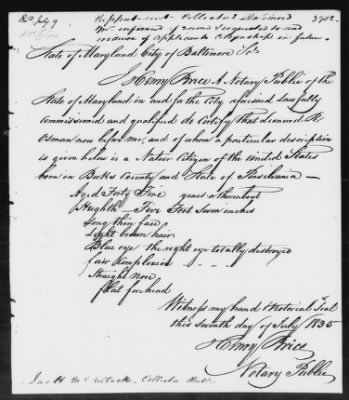 Rec'd July 9
3902.
State of Maryland City of Baltimore Ss
I Henry Brice A Notary Public of the
State of Maryland in and for the City aforesaid Lawfully
Commissioned and qualified do Certify that Leonard R
Osman now before me, and of whom a particular description
is given below is a Native Citizen of the United States
born in Berks County and State of Pensilvania —
Aged Forty Five years or thereabout
Heighth Five Feet Seven inches
Long thin face
Light brown hair
Blue eye the right eye totally destroyed
fair Komplexion
Straight Nose
flat forehead
Witness my hand & Notorial Seal
this Seventh day of July 1835
Henry Brice
Notary Public
Jas H Mc Culloch. Collector Balt.